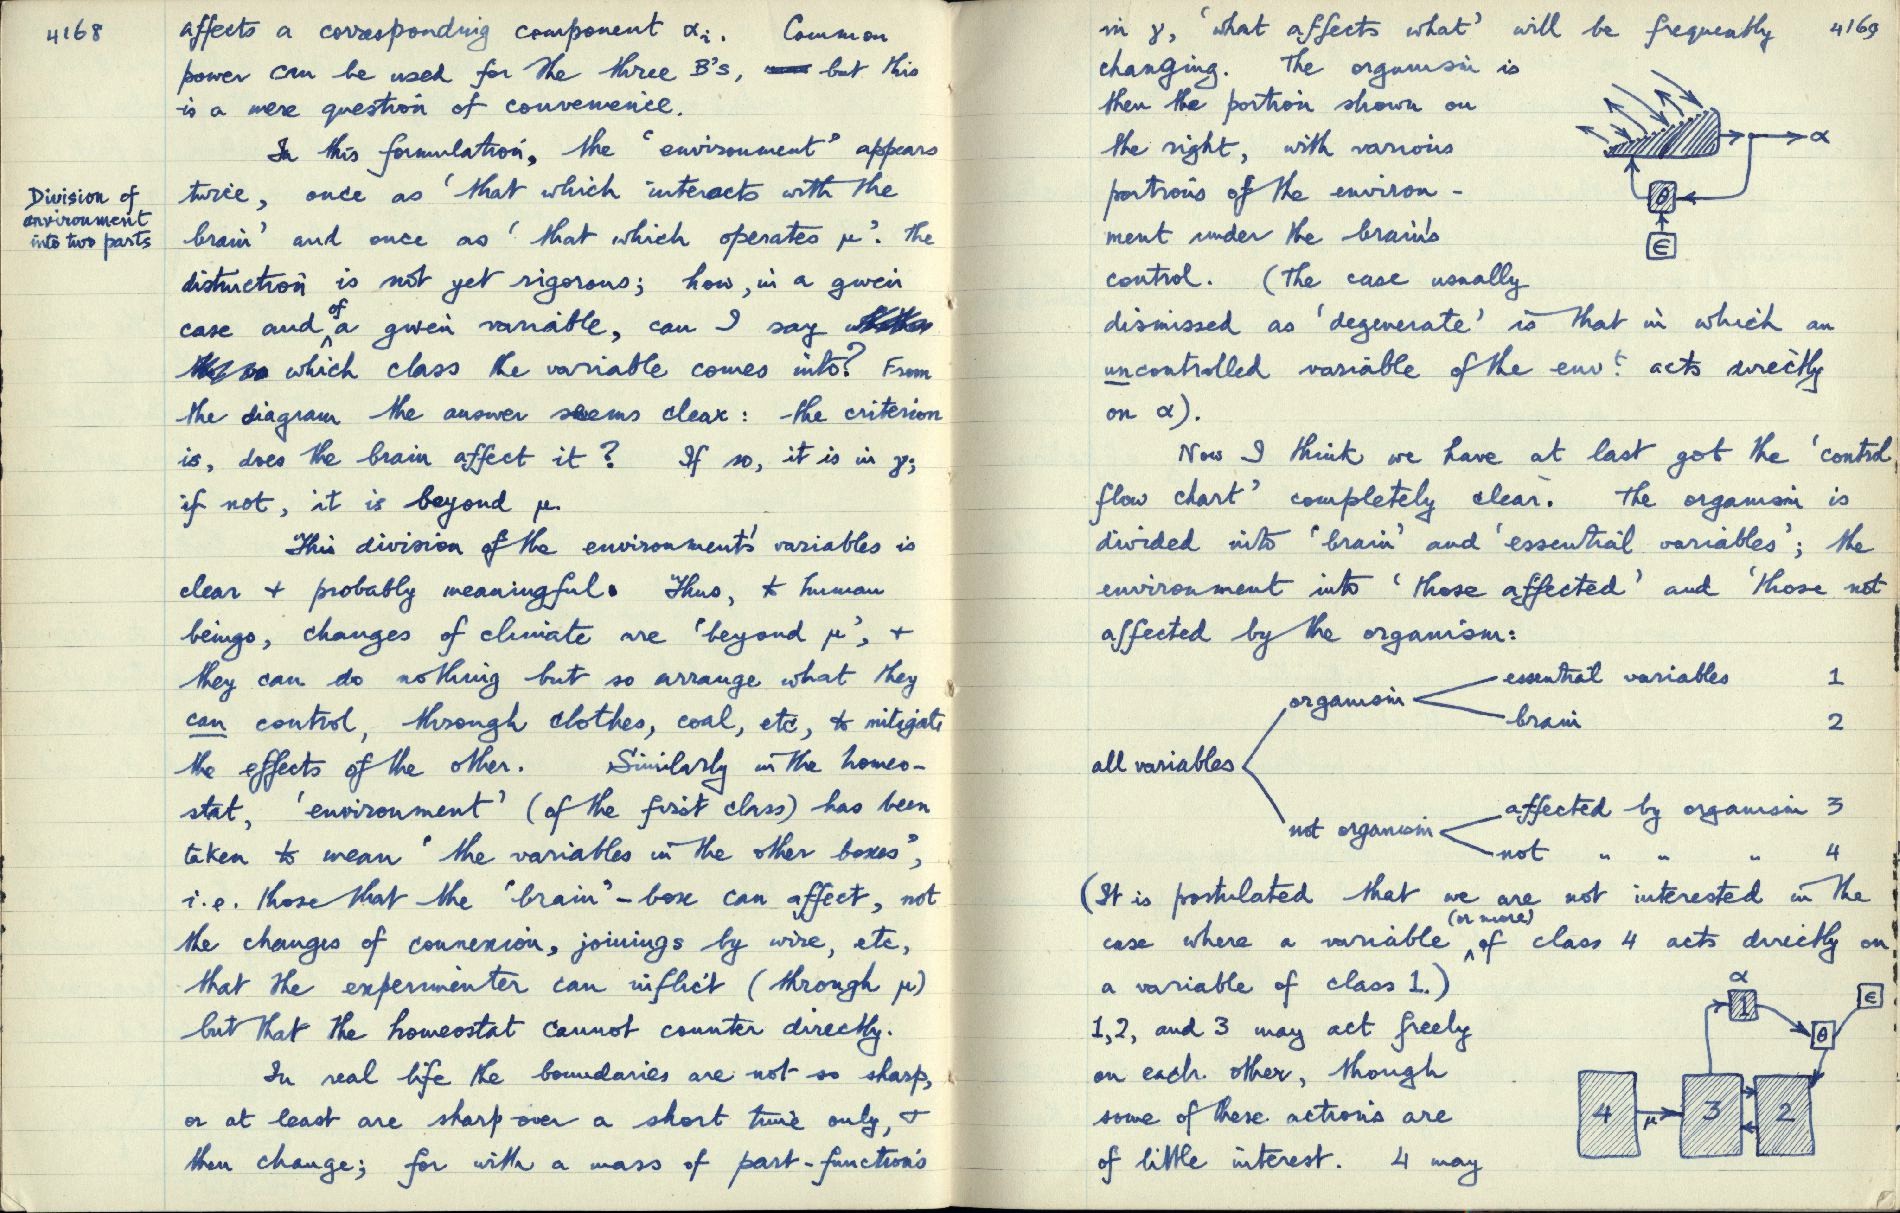 4168
affects a corresponding component αi. Common
power can be used for the three B's, but this
is a mere question of convenience.
In this formulation, the 'environment' appears
Division of
environment
into two parts
twice, once as 'that which interacts with the
brain' and once as 'that which operates μ'. The
distinction is not yet rigorous; how, in a given
case and of a given variable, can I say
which class the variable comes into? From
the diagram the answer seems clear: the criterion
is, does the brain affect it? If so, it is in γ;
if not, it is beyond μ.
This division of the environment's variables is
clear + probably meaningful. Thus, to human
beings, changes of climate are 'beyond μ', +
they can do nothing but so arrange what they
can control, through clothes, coal, etc, to mitigate
the effects of the other. Similarly in the homeo-
stat, 'environment' (of the first class) has been
taken to mean 'the variables in the other boxes',
i.e. those that the 'brain'-box can affect, not
the changes of connexion, joinings by wire, etc,
that the experimenter can inflict (through μ)
but that the homeostat cannot counter directly.
In real life the boundaries are not so sharp,
or at least are sharp over a short time only, +
then change; for with a mass of part-functions
4169
in γ, 'what affects what' will be frequently
changing. The organism is
then the portion shown on
the right, with various
portions of the environ-
ment under the brain's
control. (The case usually
α
θ
∈
dismissed as 'degenerate' is that in which an
uncontrolled variable of the envt. acts directly
on α).
Now I think we have at last got the 'control
flow chart' completely clear. The organism is
divided into 'brain' and 'essential variables'; the
environment into 'those affected' and 'those not
affected by the organism:
essential variables 1
organism
brain 2
all variables
affected by organism 3
not organism
not " " " 4
(It is postulated that we are not interested in the
case where a variable (or more) of class 4 acts directly on
a variable of class 1.)
1, 2, and 3 may act freely
on each other, though
some of these actions are
of little interest. 4 may
α
1
∈
θ
4 μ 3 2